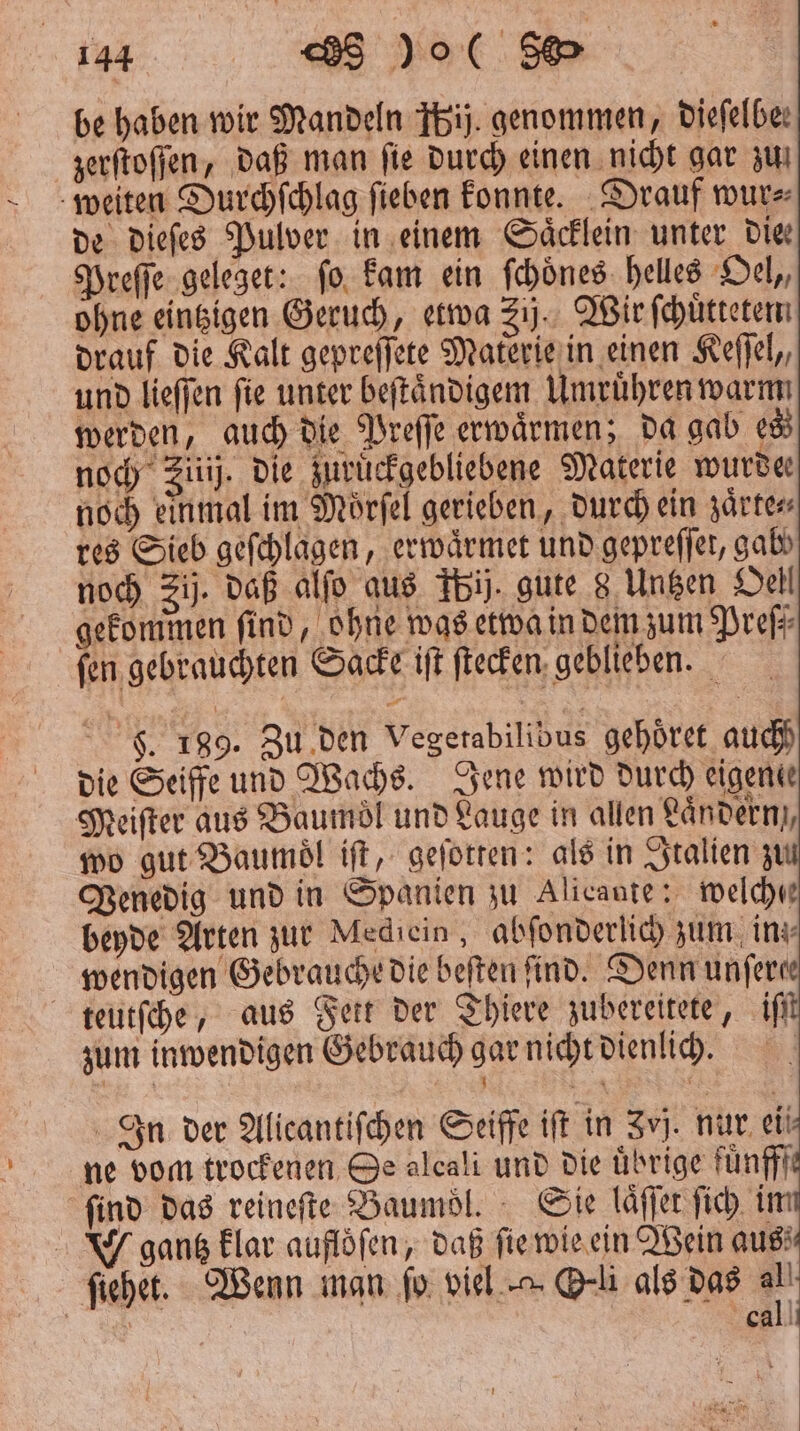 144 )o(
be haben wir Mandeln ℔ij. genommen, dieſelbe
zerſtoſſen, daß man ſie durch einen nicht gar zu
weiten Durchſchlag ſieben konnte. Drauf wur⸗
de dieſes Pulver in einem Saͤcklein unter die
Preſſe geleget: ſo kam ein ſchoͤnes helles Oel,
ohne eintzigen Geruch, etwa ℥ij. Wir ſchuͤttetem
drauf die Kalt gepreſſete Materie in einen Keſſel,
und lieſſen ſie unter beſtaͤndigem Umruͤhren warm
werden, auch die Preſſe erwaͤrmen; da gab es
noch ℥iiij. die zuruͤckgebliebene Materie wurde
noch einmal im Moͤrſel gerieben, durch ein zaͤrte⸗
res Sieb geſchlagen, erwaͤrmet und gepreſſet, gab
noch ℥ij. daß alſo aus ℔ij. gute 8 Untzen Oel
gekommen ſind, ohne was etwa in dem zum Preſ⸗
ſen gebrauchten Sacke iſt ſtecken geblieben.
§. 189. Zu den Vegetabilibus gehoͤret auch
die Seiffe und Wachs. Jene wird durch eigene
Meiſter aus Baumoͤl und Lauge in allen Laͤndern,
wo gut Baumoͤl iſt, geſotten: als in Italien zu
Venedig und in Spanien zu Alicante: welche
beyde Arten zur Medicin, abſonderlich zum in⸗
wendigen Gebrauche die beſten ſind. Denn unſere
teutſche, aus Fett der Thiere zubereitete, iſt
zum inwendigen Gebrauch gar nicht dienlich.
In der Alicantiſchen Seiffe iſt in ℥vj. nur ei⸗
ne vom trockenen Se alcali und die uͤbrige fuͤnffe
ſind das reineſte Baumoͤl. Sie laͤſſet ſich im
gantz klar aufloͤſen, daß ſie wie ein Wein aus⸗
ſiehet. Wenn man ſo viel als das al
cal